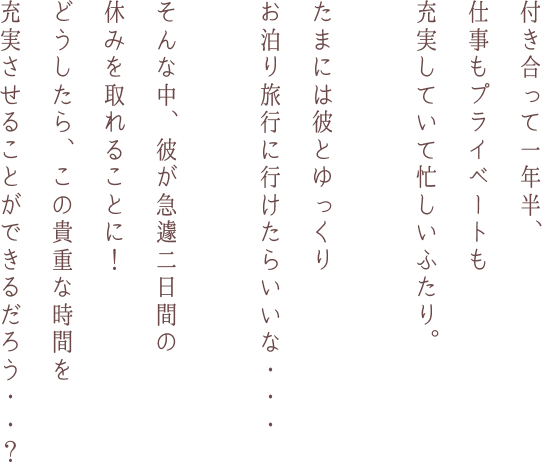 付き合って一年半、
仕事もプライベートも
充実していて忙しいふたり。
たまには彼とゆっくり
お泊り旅行に行けたらいいな・・・
そんな中、彼が急遽二日間の
休みを取れることに！
どうしたら、この貴重な時間を
充実させることができるだろう・・？